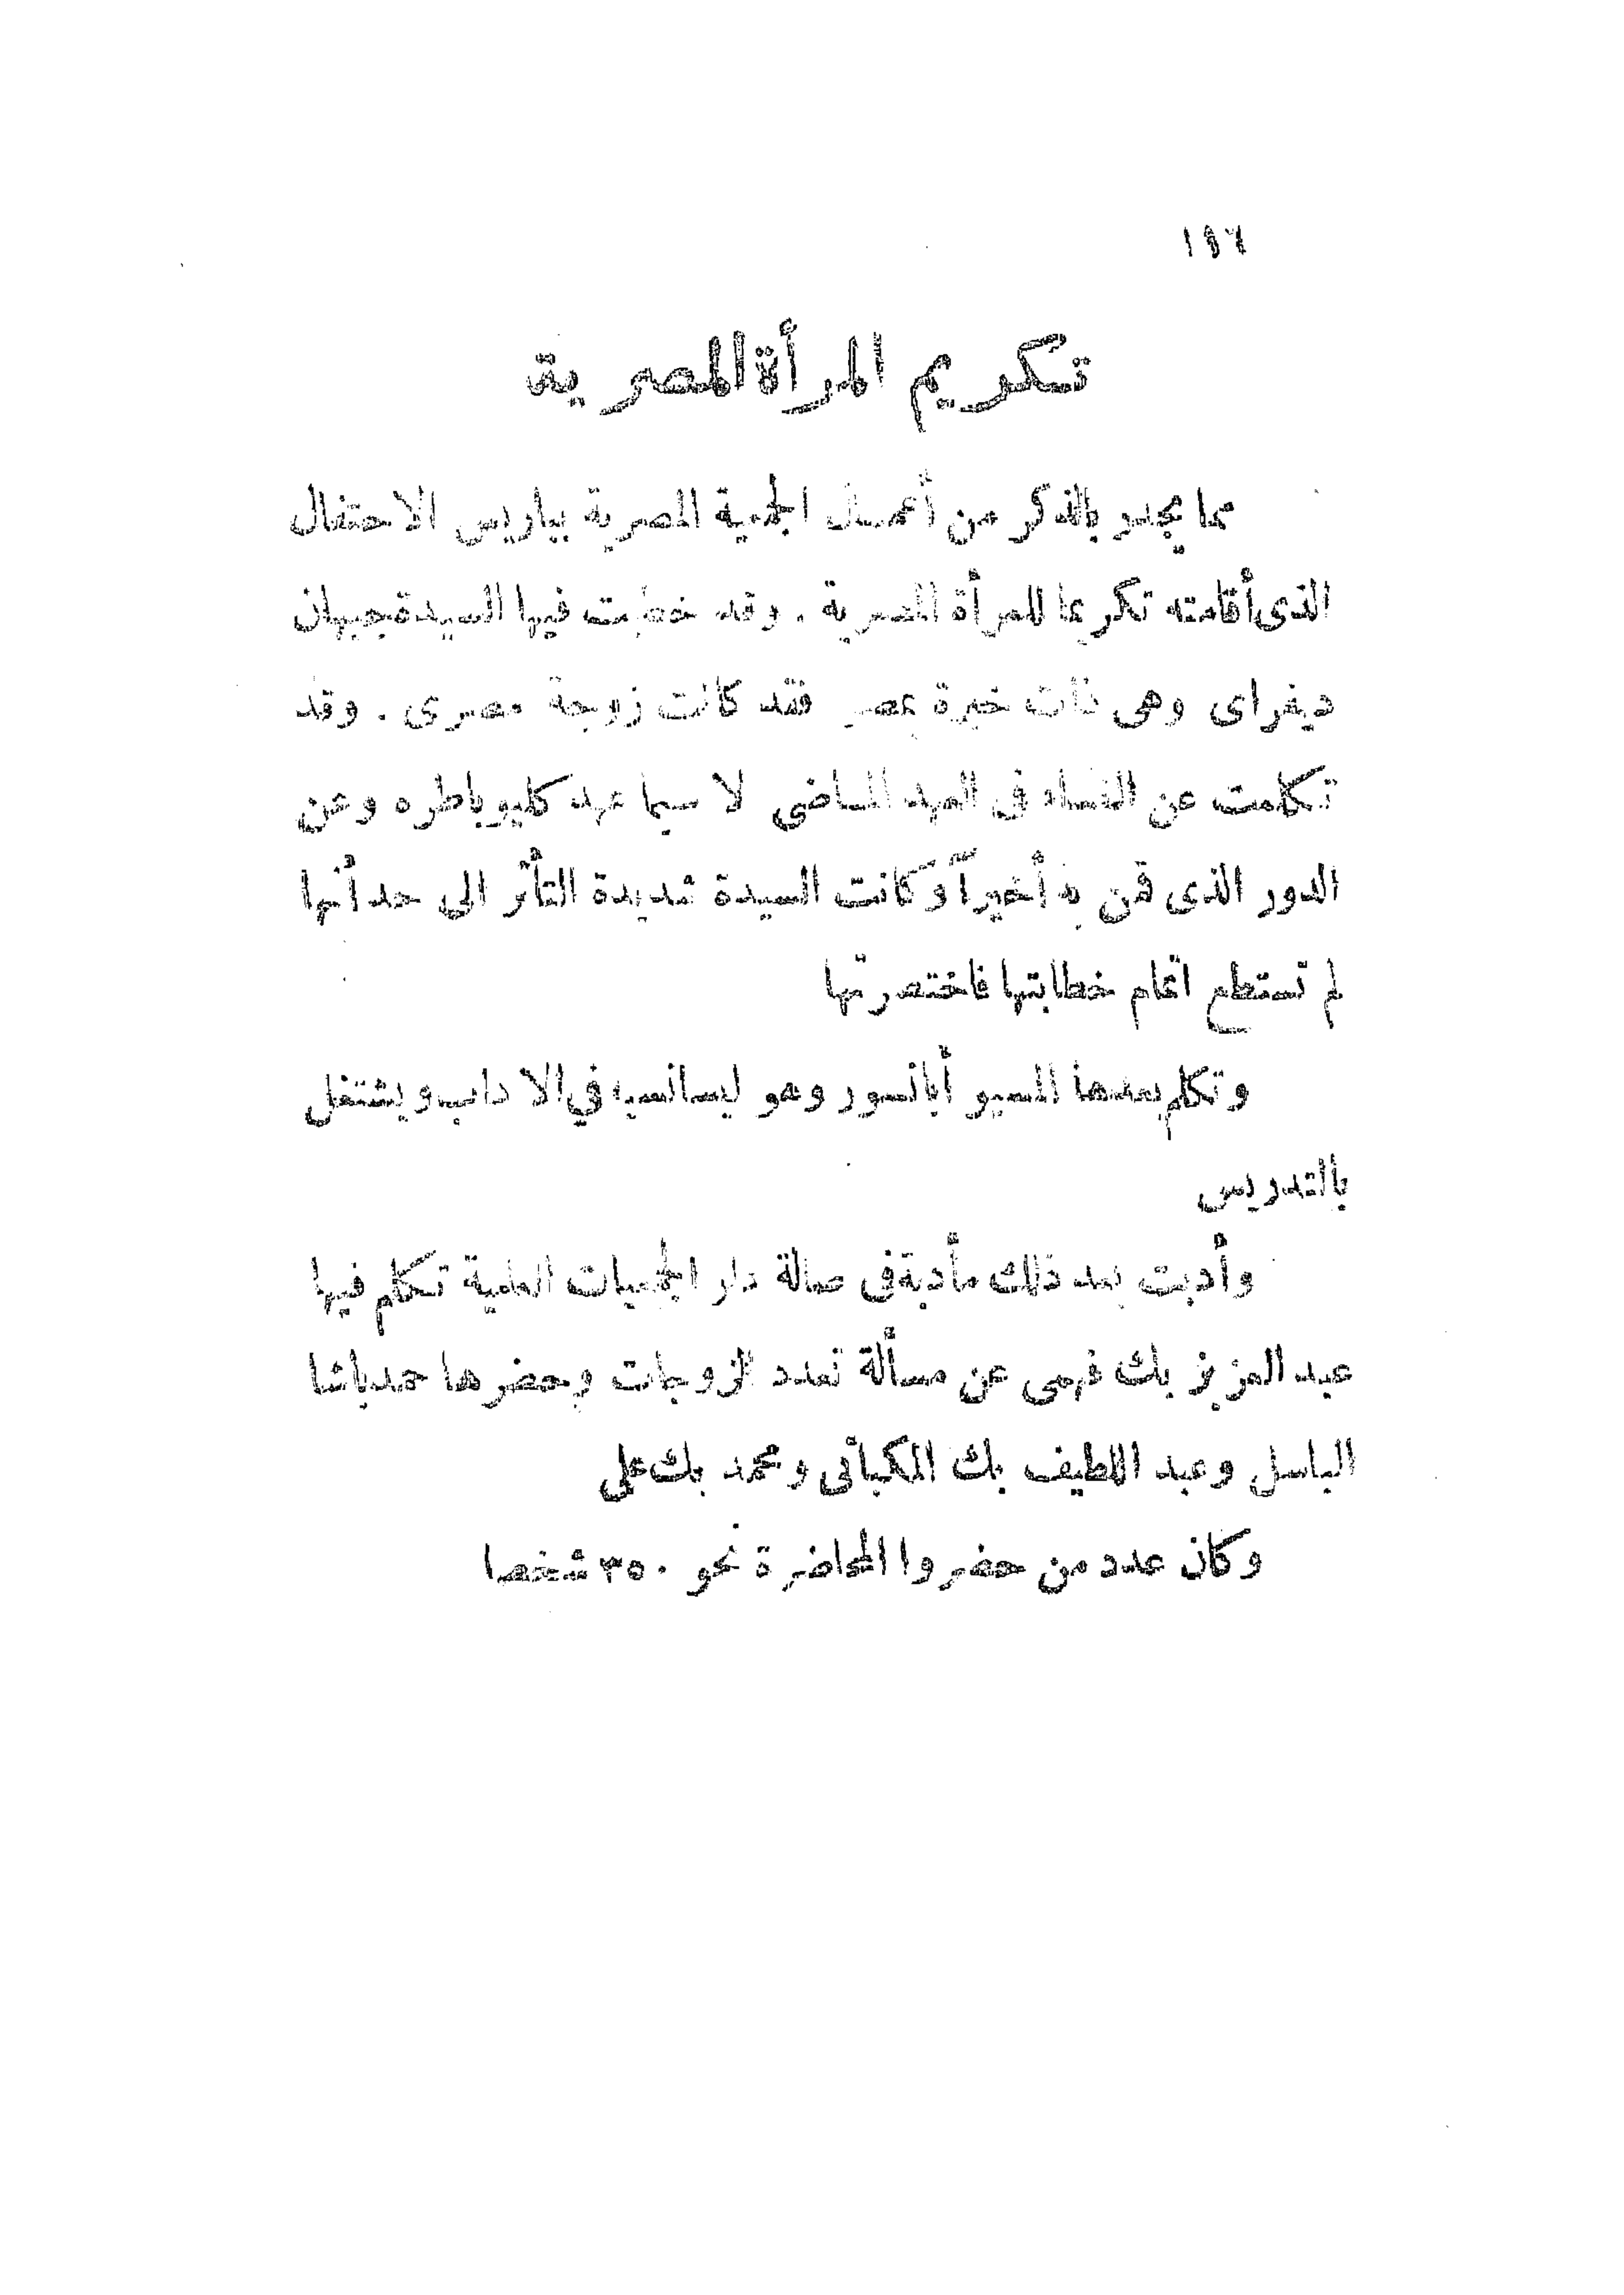 ١٩٦
تكريم المرأة المصرية
مما يجدر بالذكر من أعمال الجمعية المصرية بباريس الاحتفال
الذى أقامته تكريما للمرأة المصرية . وقد خطبت فيها السيدة جيهان
ديفراى وهى ذات خبرة بمصر فقد كانت زوجة مصرى . وقد
تكلمت عن النساء فى العهد الماضى لا سيما عهد كليوباطره وعن
الدور الذى قمن به أخيراً وكانت السيدة شديدة التأثر الى حد أنها
لم تستطع اتمام خطابتها فاختصرتها
وتكلم بعدها المسيو أبانسور وهو ليسانسيه في الآداب ويشتغل
بالتدريس
وأدبت بعد ذلك مأدبة فى صالة دار الجمعيات العلمية تكلم فيها
عبد العزيز بك فهمى عن مسألة تعدد الزوجات وحضرها حمد باشا
الباسل وعبد اللطيف بك المكباتى ومحمد بك على
وكان عدد من حضروا المحاضرة نحو ٣٥٠ شخصا